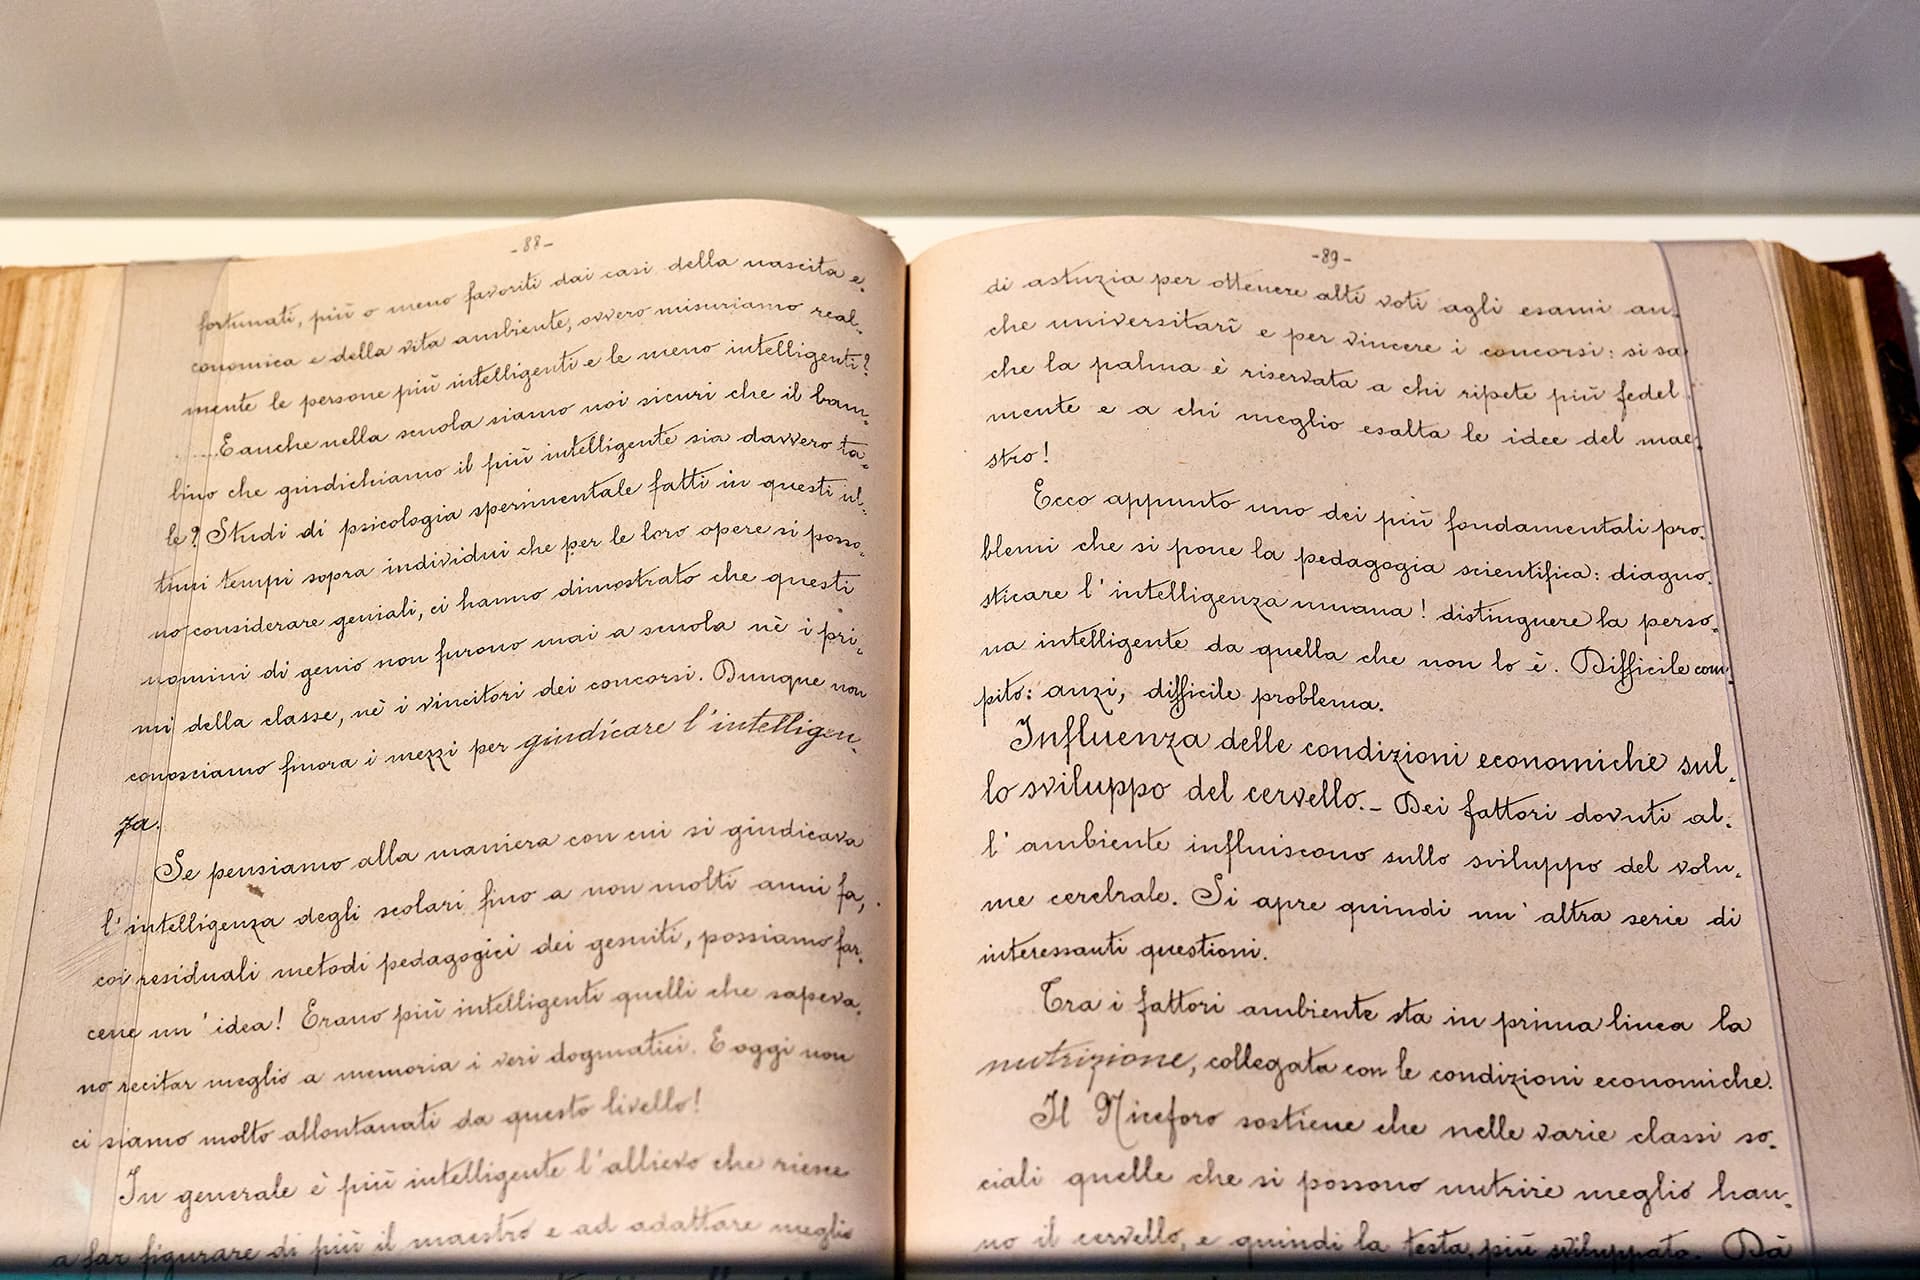 -88-
fortunati, più o meno favoriti dai casi della nascita e-
conomica e della vita ambiente, ovvero misuriamo real-
mente le persone più intelligenti e le meno intelligenti?
.....E anche nella scuola siamo noi sicuri che il bam-
bino che giudichiamo il più intelligente sia davvero ta-
le? Studi di psicologia sperimentale fatti in questi ul-
timi tempi sopra individui che per le loro opere si posso-
no considerare geniali, ci hanno dimostrato che questi
uomini di genio non furono mai a scuola nè i pri-
mi della classe, nè i vincitori dei concorsi. Dunque non
conosciamo finora i mezzi per giudicare l'intelligen-
za.
Se pensiamo alla maniera con cui si giudicava
l'intelligenza degli scolari fino a non molti anni fa,
coi residuali metodi pedagogici dei gesuiti, possiamo far-
cene un'idea! Erano più intelligenti quelli che sapeva-
no recitar meglio a memoria i veri dogmatici. E oggi non
ci siamo molto allontanati da questo livello!
In generale è più intelligente l'allievo che riesce
a far figurare di più il maestro e ad adattare meglio
-89-
di astuzia per ottenere alti voti agli esami an-
che universitarî e per vincere i concorsi: si sa
che la palma è riservata a chi ripete più fedel-
mente e a chi meglio esalta le idee del mae-
stro!
Ecco appunto uno dei più fondamentali pro-
blemi che si pone la pedagogia scientifica: diagno-
sticare l'intelligenza umana! distinguere la perso-
na intelligente da quella che non lo è. Difficile com-
pito: anzi, difficile problema.
Influenza delle condizioni economiche sul-
lo sviluppo del cervello. - Dei fattori dovuti al-
l'ambiente influiscono sullo sviluppo del volu-
me cerebrale. Si apre quindi un'altra serie di
interessanti questioni.
Tra i fattori ambiente sta in prima linea la
nutrizione, collegata con le condizioni economiche.
Il Niceforo sostiene che nelle varie classi so-
ciali quelle che si possono nutrire meglio han-
no il cervello, e quindi la testa, più sviluppata. Dà